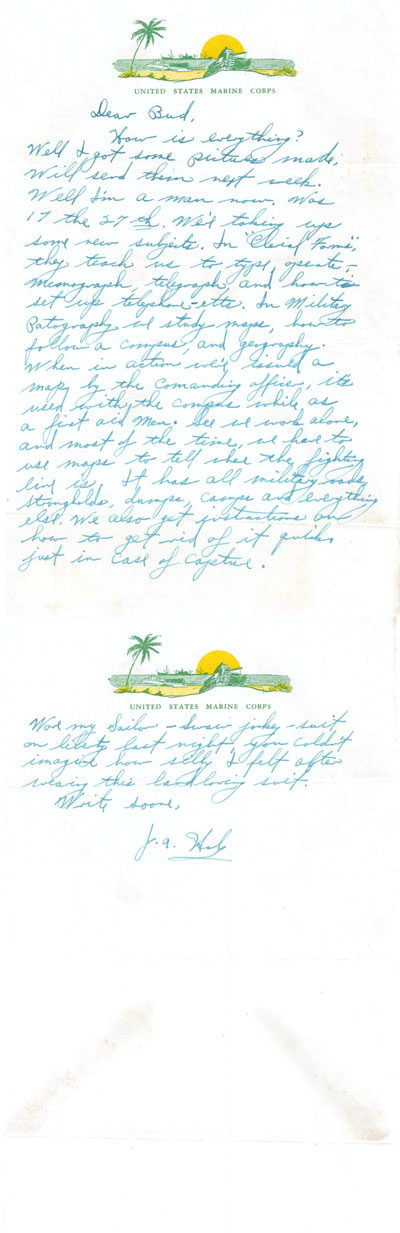 UNITED STATES MARINE CORPS
Dear Bud,
How is everything?
Well I got some pictures made,
Will send them next week.
Well I'm a man now. Was
17 the 27th. We'll taking up
some new subjects. In "Clerical Forms",
they teach us to type, operate,
Memograph, telegraph, and how to
set up telephone-etts. In Military
Patography we study maps, how to
follow a compus, and geography.
When in action we'll issued a
map by the comanding officer, its
used with the compus while as
a first aid men. See we work alone,
and most of the time, we have to
use maps to tell where the fighting
line is. It has all military roads,
strongholds, dumps, camps and everything
else. We also get instructions on
how to get rid of it quick,
just in case of capture.
UNITED STATES MARINE CORPS
Wore my Sailor - jockey - suit
on liberty last night, you could't
imagine how silly I felt after
wearing this suit.
Write soon,
J.a.